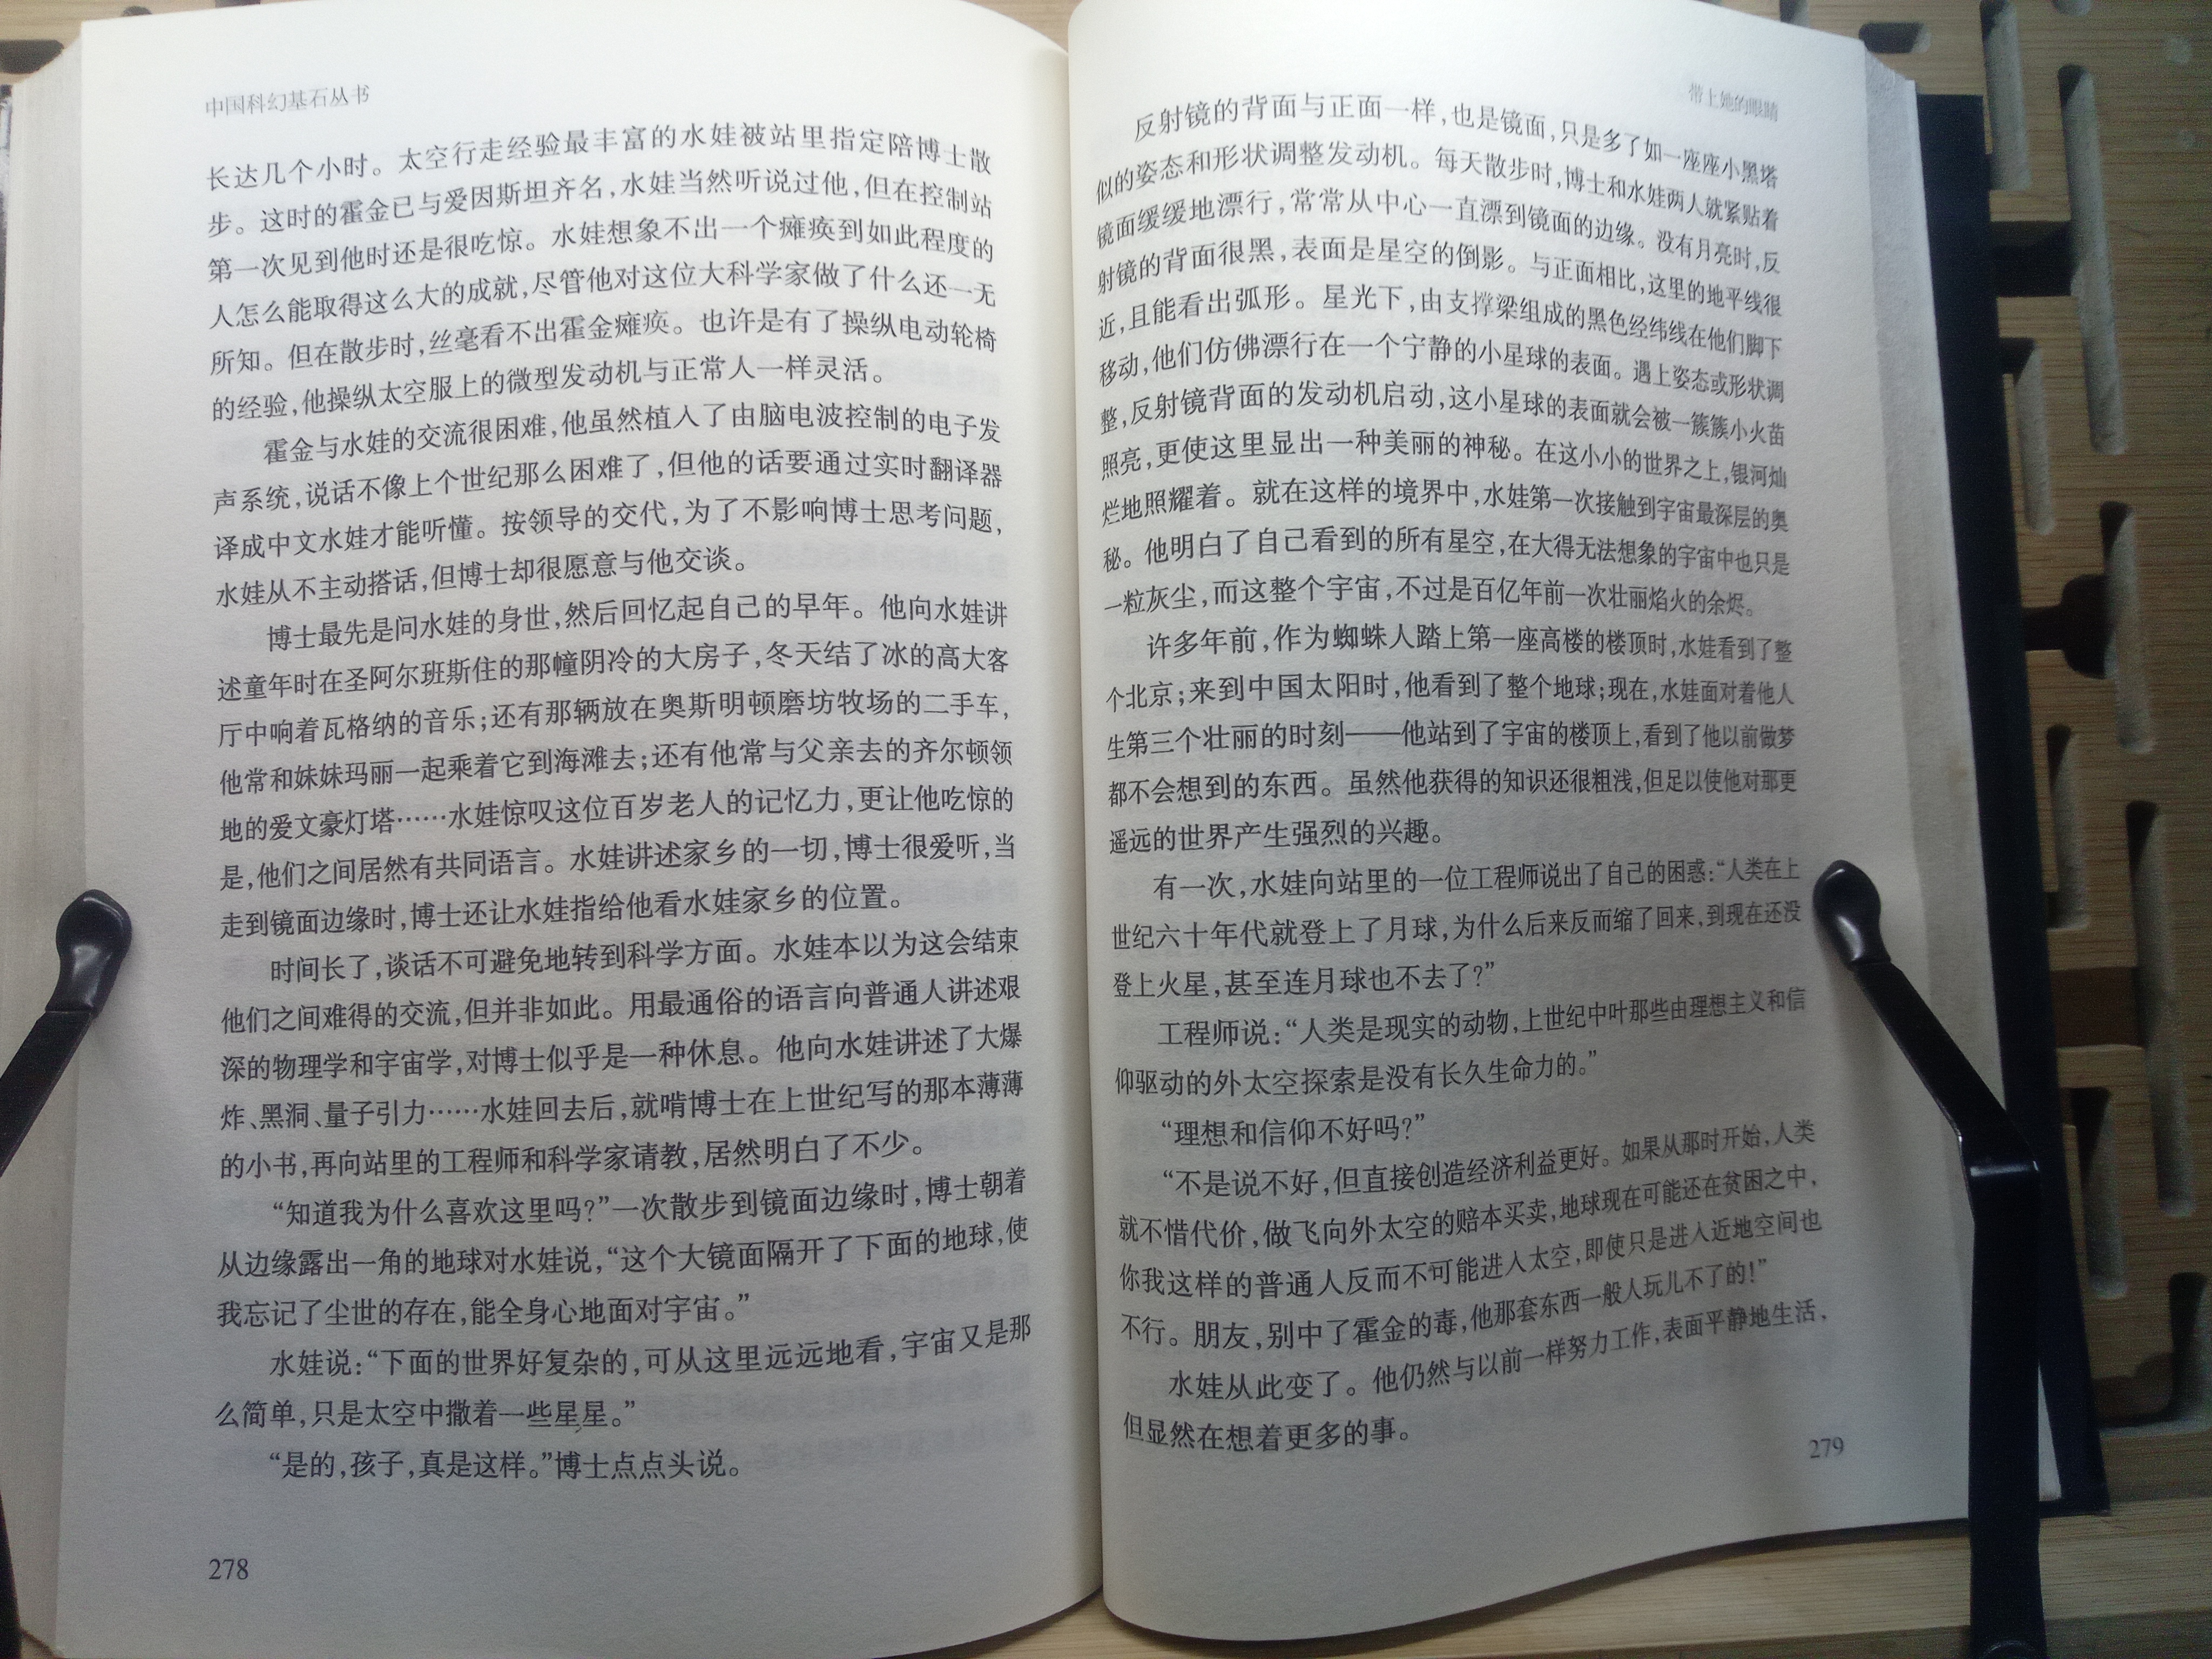 中国科幻基石丛书
长达几个小时。太空行走经验最丰富的水娃被站里指定陪博士散
步。这时的霍金已与爱因斯坦齐名,水娃当然听说过他,但在控制站
第一次见到他时还是很吃惊。水娃想象不出一个瘫痪到如此程度的
人怎么能取得这么大的成就,尽管他对这位大科学家做了什么还一无
所知。但在散步时,丝毫看不出霍金瘫痪。也许是有了操纵电动轮椅
的经验,他操纵太空服上的微型发动机与正常人一样灵活。
霍金与水娃的交流很困难,他虽然植入了由脑电波控制的电子发
声系统,说话不像上个世纪那么困难了,但他的话要通过实时翻译器
译成中文水娃才能听懂。按领导的交代,为了不影响博士思考问题,
水娃从不主动搭话,但博士却很愿意与他交谈。
博士最先是问水娃的身世,然后回忆起自己的早年。他向水娃讲
述童年时在圣阿尔班斯住的那幢阴冷的大房子,冬天结了冰的高大客
厅中响着瓦格纳的音乐;还有那辆放在奥斯明顿磨坊牧场的二手车,
他常和妹妹玛丽一起乘着它到海滩去;还有他常与父亲去的齐尔顿领
地的爱文豪灯塔……水娃惊叹这位百岁老人的记忆力,更让他吃惊的
是,他们之间居然有共同语言。水娃讲述家乡的一切,博士很爱听,当
走到镜面边缘时,博士还让水娃指给他看水娃家乡的位置。
时间长了,谈话不可避免地转到科学方面。水娃本以为这会结束
他们之间难得的交流,但并非如此。用最通俗的语言向普通人讲述艰
深的物理学和宇宙学,对博士似乎是一种休息。他向水娃讲述了大爆
炸、黑洞、量子引力……水娃回去后,就啃博士在上世纪写的那本薄薄
的小书,再向站里的工程师和科学家请教,居然明白了不少。
“知道我为什么喜欢这里吗?”一次散步到镜面边缘时,博士朝着
从边缘露出一角的地球对水娃说,“这个大镜面隔开了下面的地球,使
我忘记了尘世的存在,能全身心地面对宇宙。”
水娃说:“下面的世界好复杂的,可从这里远远地看,宇宙又是那
么简单,只是太空中撒着一些星星。”
“是的,孩子,真是这样。”博士点点头说。
278
带上她的眼睛
反射镜的背面与正面一样,也是镜面,只是多了如一座座小黑塔
似的姿态和形状调整发动机。每天散步时,博士和水娃两人就紧贴着
镜面缓缓地漂行,常常从中心一直漂到镜面的边缘。没有月亮时,反
射镜的背面很黑,表面是星空的倒影。与正面相比,这里的地平线很
近,且能看出弧形。星光下,由支撑梁组成的黑色经纬线在他们脚下
移动,他们仿佛漂行在一个宁静的小星球的表面。遇上姿态或形状调
整,反射镜背面的发动机启动,这小星球的表面就会被一簇簇小火苗
照亮,更使这里显出一种美丽的神秘。在这小小的世界之上,银河灿
烂地照耀着。就在这样的境界中,水娃第一次接触到宇宙最深层的奥
秘。他明白了自己看到的所有星空,在大得无法想象的宇宙中也只是
一粒灰尘,而这整个宇宙,不过是百亿年前一次壮丽焰火的余烬。
许多年前,作为蜘蛛人踏上第一座高楼的楼顶时,水娃看到了整
个北京;来到中国太阳时,他看到了整个地球;现在,水娃面对着他人
生第三个壮丽的时刻——他站到了宇宙的楼顶上,看到了他以前做梦
都不会想到的东西。虽然他获得的知识还很粗浅,但足以使他对那更
遥远的世界产生强烈的兴趣。
有一次,水娃向站里的一位工程师说出了自己的困惑:“人类在上
世纪六十年代就登上了月球,为什么后来反而缩了回来,到现在还没
登上火星,甚至连月球也不去了?”
工程师说:“人类是现实的动物,上世纪中叶那些由理想主义和信
仰驱动的外太空探索是没有长久生命力的。”
“理想和信仰不好吗?”
“不是说不好,但直接创造经济利益更好。如果从那时开始,人类
就不惜代价,做飞向外太空的赔本买卖,地球现在可能还在贫困之中,
你我这样的普通人反而不可能进入太空,即使只是进入近地空间也
不行。朋友,别中了霍金的毒,他那套东西一般人玩儿不了的!”
水娃从此变了。他仍然与以前一样努力工作,表面平静地生活,
但显然在想着更多的事。
279